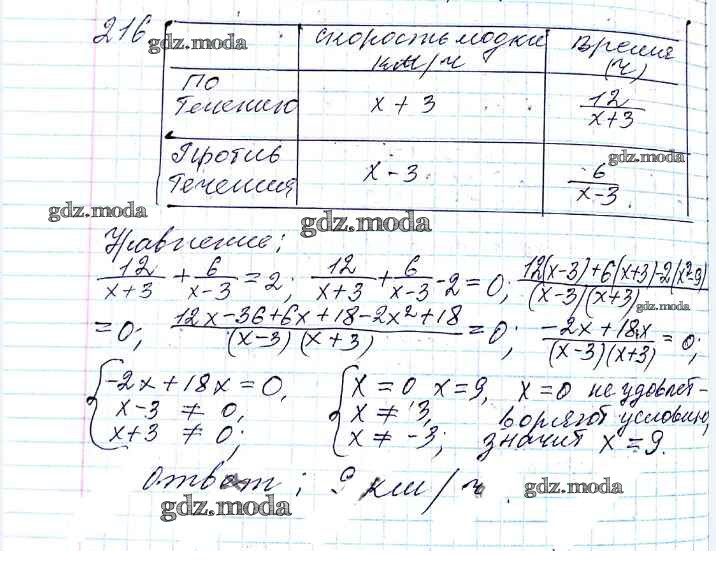 216
gdz.moda
скорость лодки км/ч
Время (ч)
По течению
x + 3
12/(x+3)
Против течения
x - 3
6/(x-3)
gdz.moda
gdz.moda
gdz.moda
Уравнение:
12/(x+3) + 6/(x-3) = 2; 12/(x+3) + 6/(x-3) - 2 = 0; (12(x-3)+6(x+3)-2(x²-9))/((x-3)(x+3))
gdz.moda
= 0; (12x-36+6x+18-2x²+18)/((x-3)(x+3)) = 0; (-2x+18x)/((x-3)(x+3)) = 0;
{ -2x+18x=0, { x=0 x=9, x=0 не удовлет-
x-3 ≠ 0, x ≠ 3, воряют условию,
x+3 ≠ 0; x ≠ -3; значит x=9.
Ответ: 9 км/ч.
gdz.moda
gdz.moda